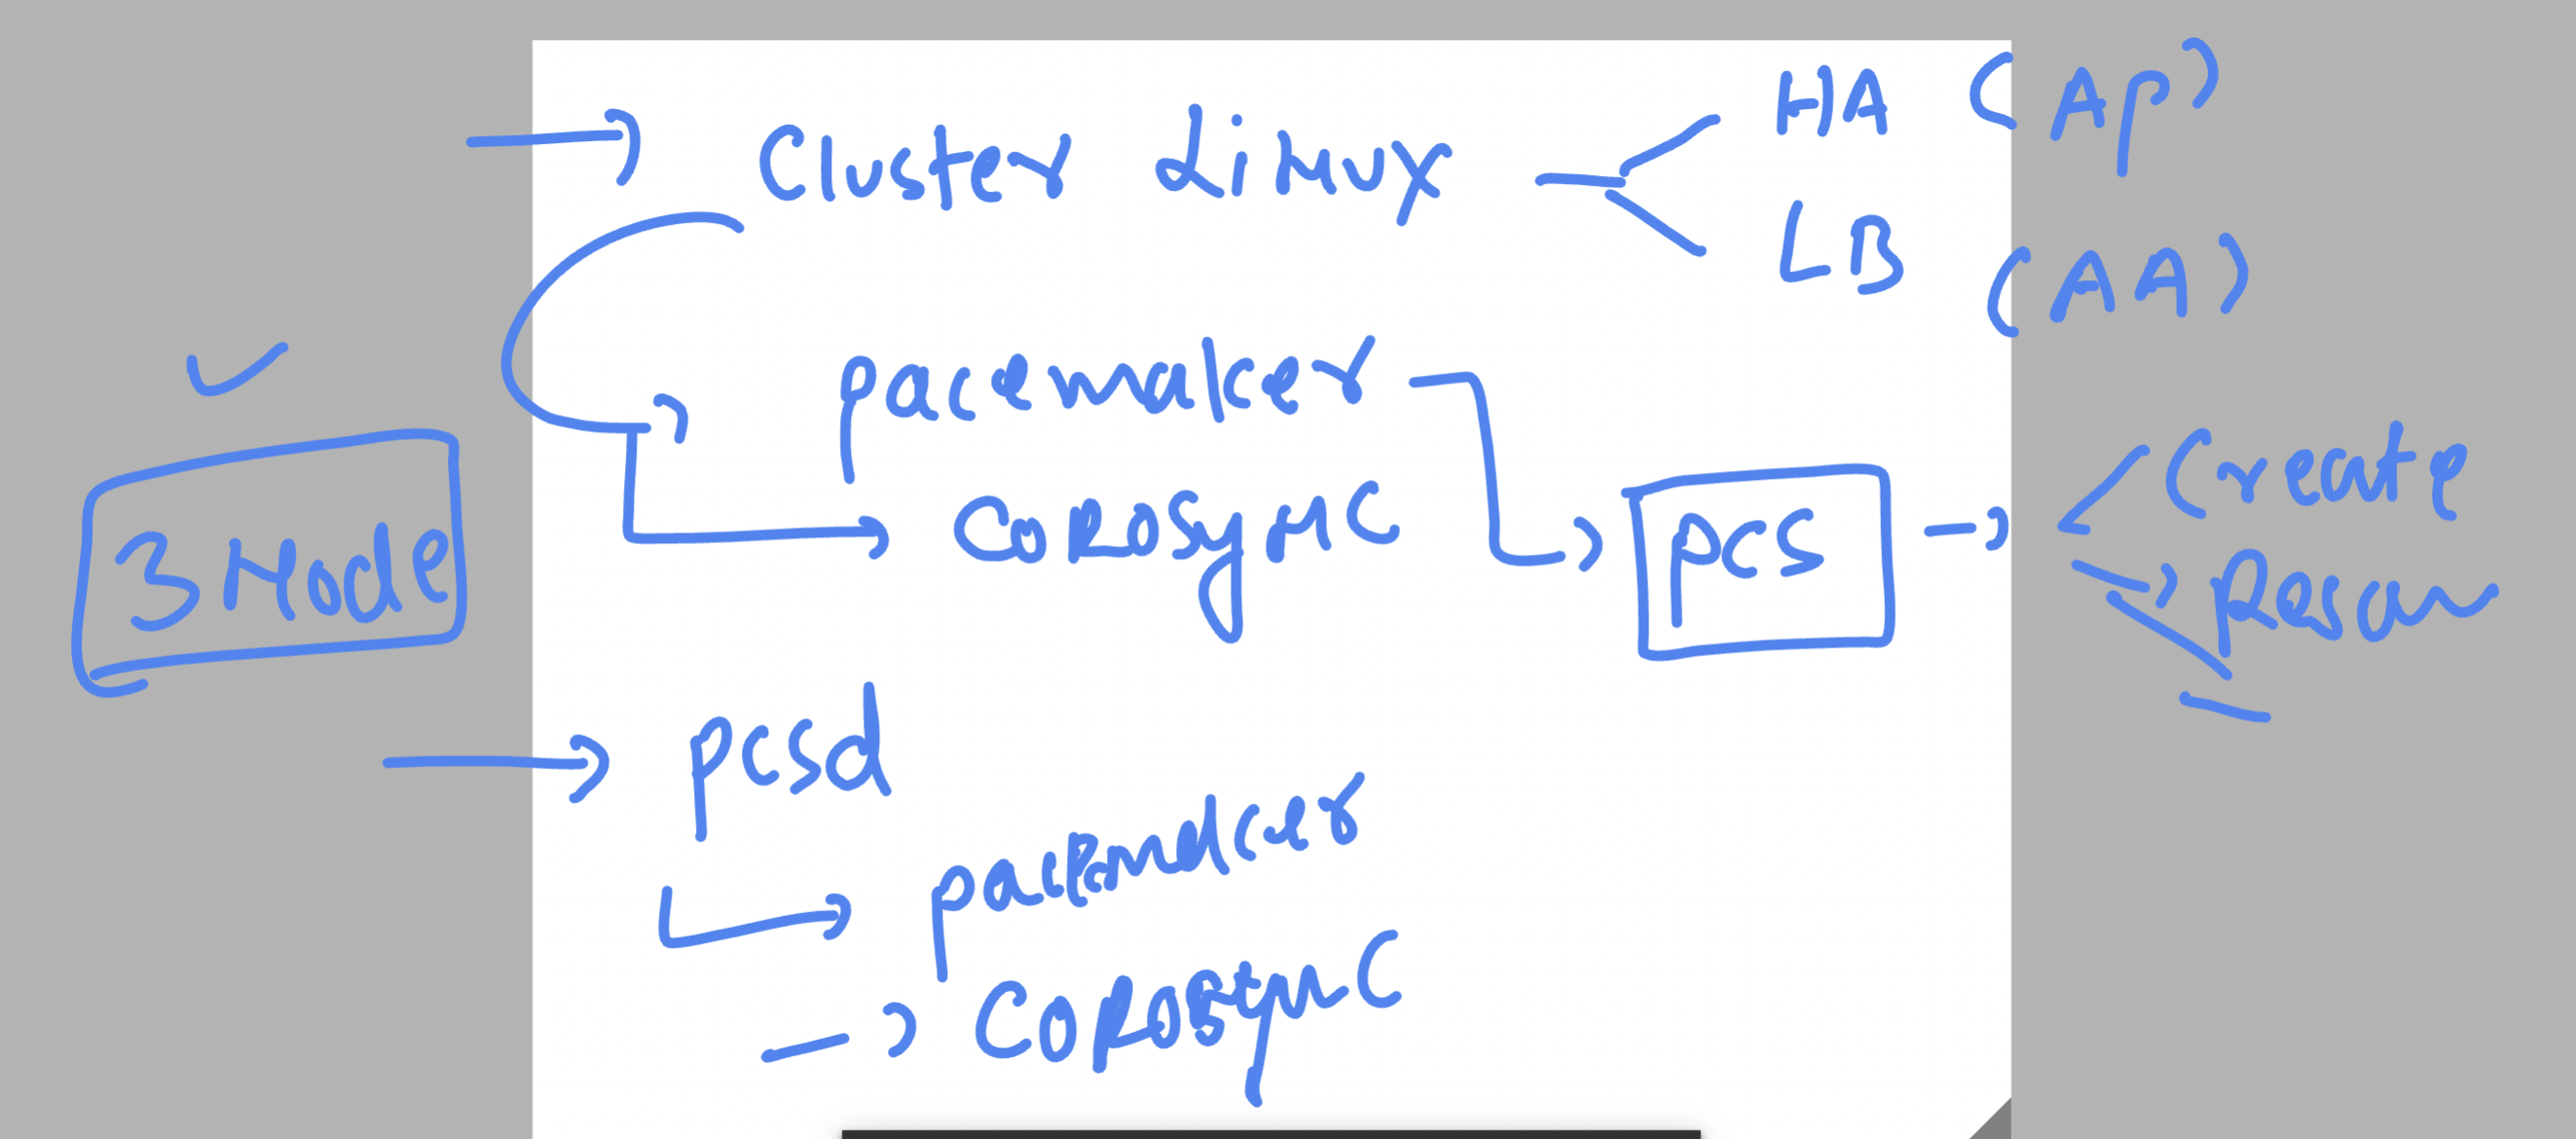 Cluster Linux
HA (AP)
LB (AA)
pacemaker
COROSYNC
3 Node
pcs
Create
pcsd
pacemaker
COROSYNC